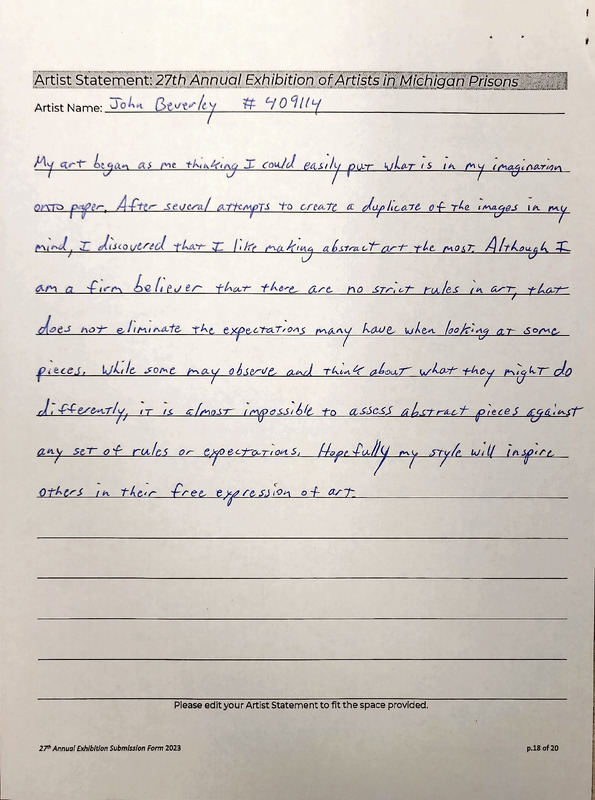 Artist Statement: 27th Annual Exhibition of Artists in Michigan Prisons
Artist Name: John Beverley # 409114
My art began as me thinking I could easily put what is in my imagination
onto paper. After several attempts to create a duplicate of the images in my
mind, I discovered that I like making abstract art the most. Although I
am a firm believer that there are no strict rules in art, that
does not eliminate the expectations many have when looking at some
pieces. While some may observe and think about what they might do
differently, it is almost impossible to assess abstract pieces against
any set of rules or expectations. Hopefully my style will inspire
others in their free expression of art.
Please edit your Artist Statement to fit the space provided.
27th Annual Exhibition Submission Form 2023 p.18 of 20